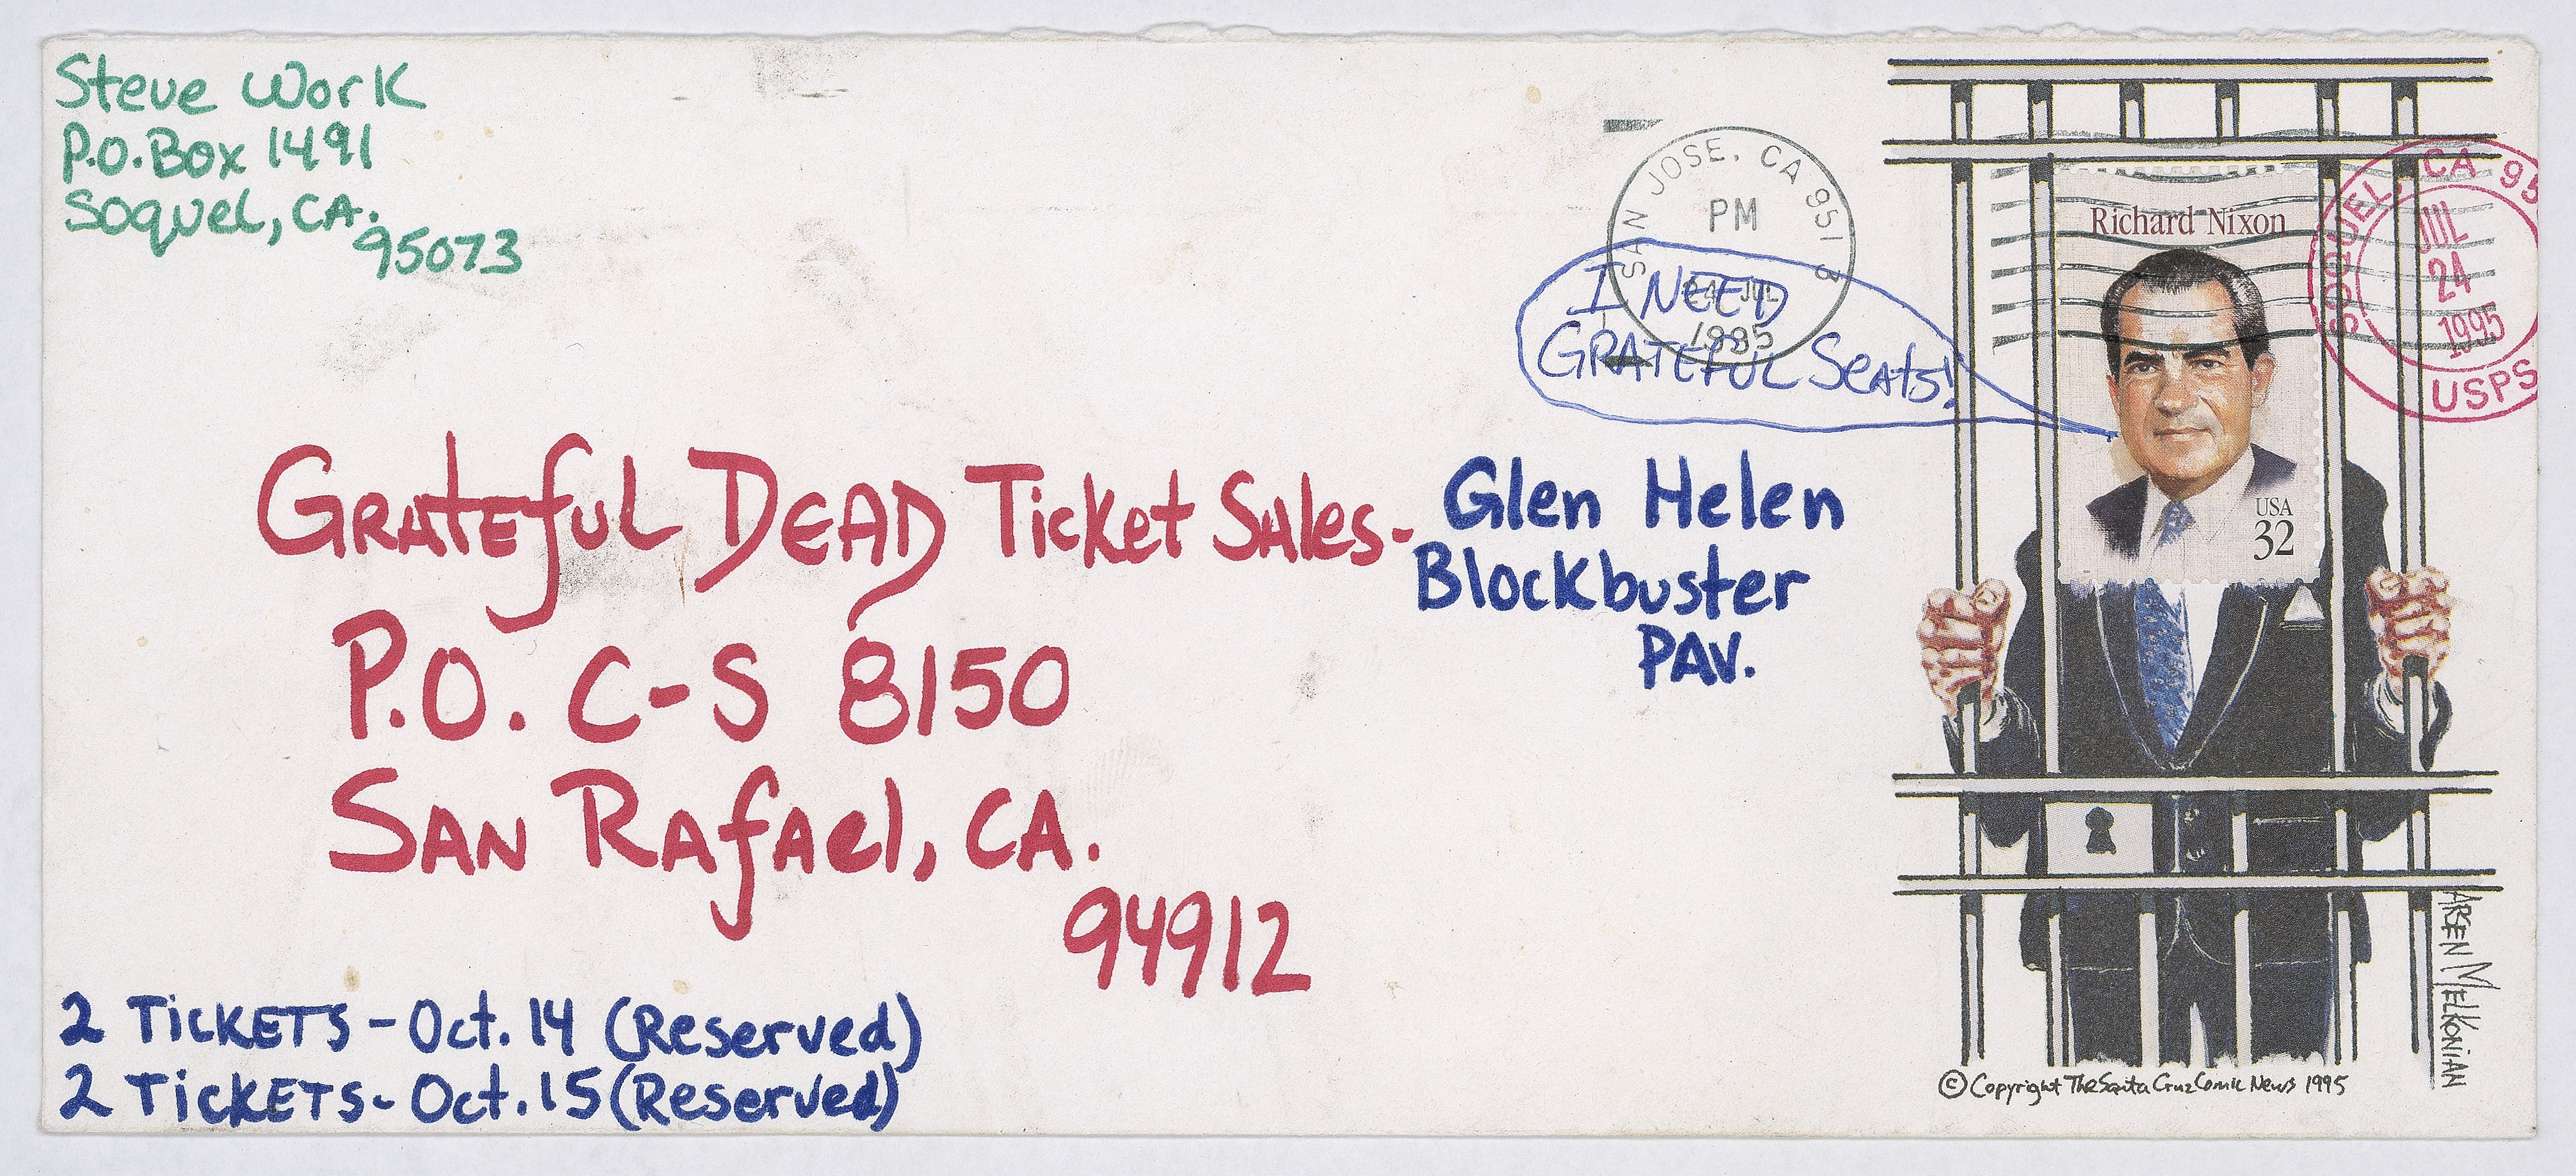 Steve Work
P.O. Box 1491
Soquel, CA.
95073
SAN JOSE, CA 951
PM
24 JUL
1995
I NEED
GRATEFUL Seats!
Richard Nixon
USA
32
SOQUEL, CA 95
JUL
24
1995
USPS
GRATEFUL DEAD Ticket Sales-
Glen Helen
Blockbuster
PAV.
P.O. C-S 8150
SAN RAfAel, CA.
94912
2 TiCKETS - Oct. 14 (Reserved)
2 TiCKETS - Oct. 15 (Reserved)
ARSEN MELKONIAN
© Copyright The Santa Cruz Comic News 1995